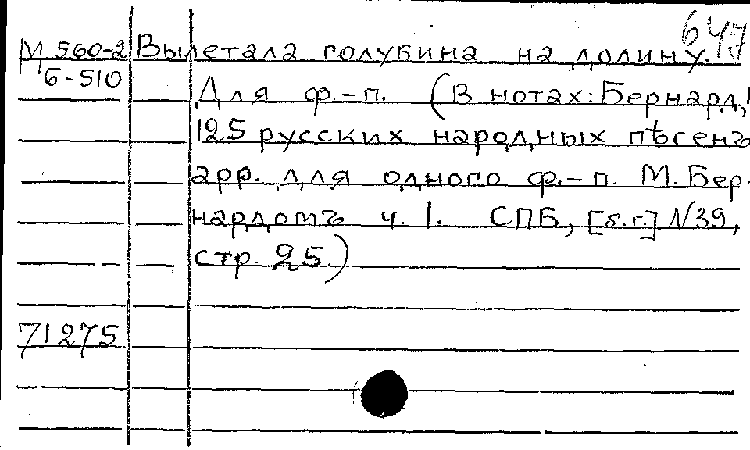 647
М 560-2 Вылетала голубина на долину.
Б-510
Для ф.-п. (В нотах: Бернард,
125 русских народных пѣсенъ
арр. для одного ф.-п. М. Бер-
нардомъ ч. 1. СПБ, [б.г.] №39,
стр. 25.)
71275